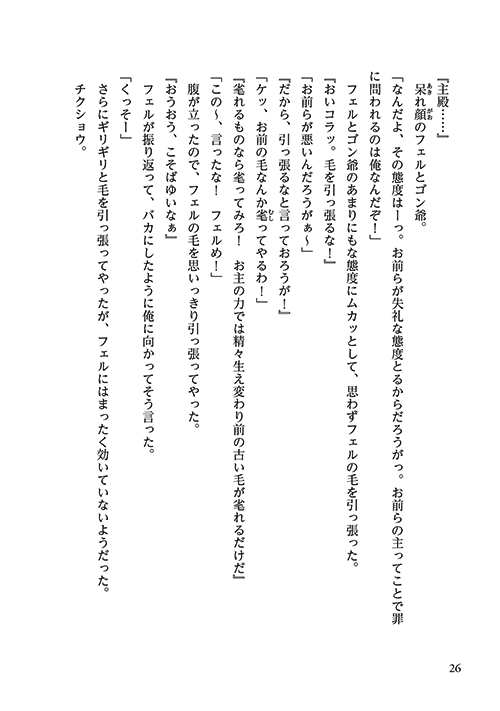 『主殿……』
呆れ顔のフェルとゴン爺。
「なんだよ、その態度はーっ。お前らが失礼な態度とるからだろうがっ。お前らの主ってことで罪
に問われるのは俺なんだぞ！」
フェルとゴン爺のあまりにもな態度にムカッとして、思わずフェルの毛を引っ張った。
『おいコラッ。毛を引っ張るな！』
「お前らが悪いんだろうがぁ～」
『だから、引っ張るなと言っておろうが！』
「ケッ、お前の毛なんか毟ってやるわ！」
『毟れるものなら毟ってみろ！　お主の力では精々生え変わり前の古い毛が毟れるだけだ』
「この～、言ったな！　フェルめ！」
腹が立ったので、フェルの毛を思いっきり引っ張ってやった。
『おうおう、こそばゆいなぁ』
フェルが振り返って、バカにしたように俺に向かってそう言った。
「くっそー」
さらにギリギリと毛を引っ張ってやったが、フェルにはまったく効いていないようだった。
チクショウ。
26